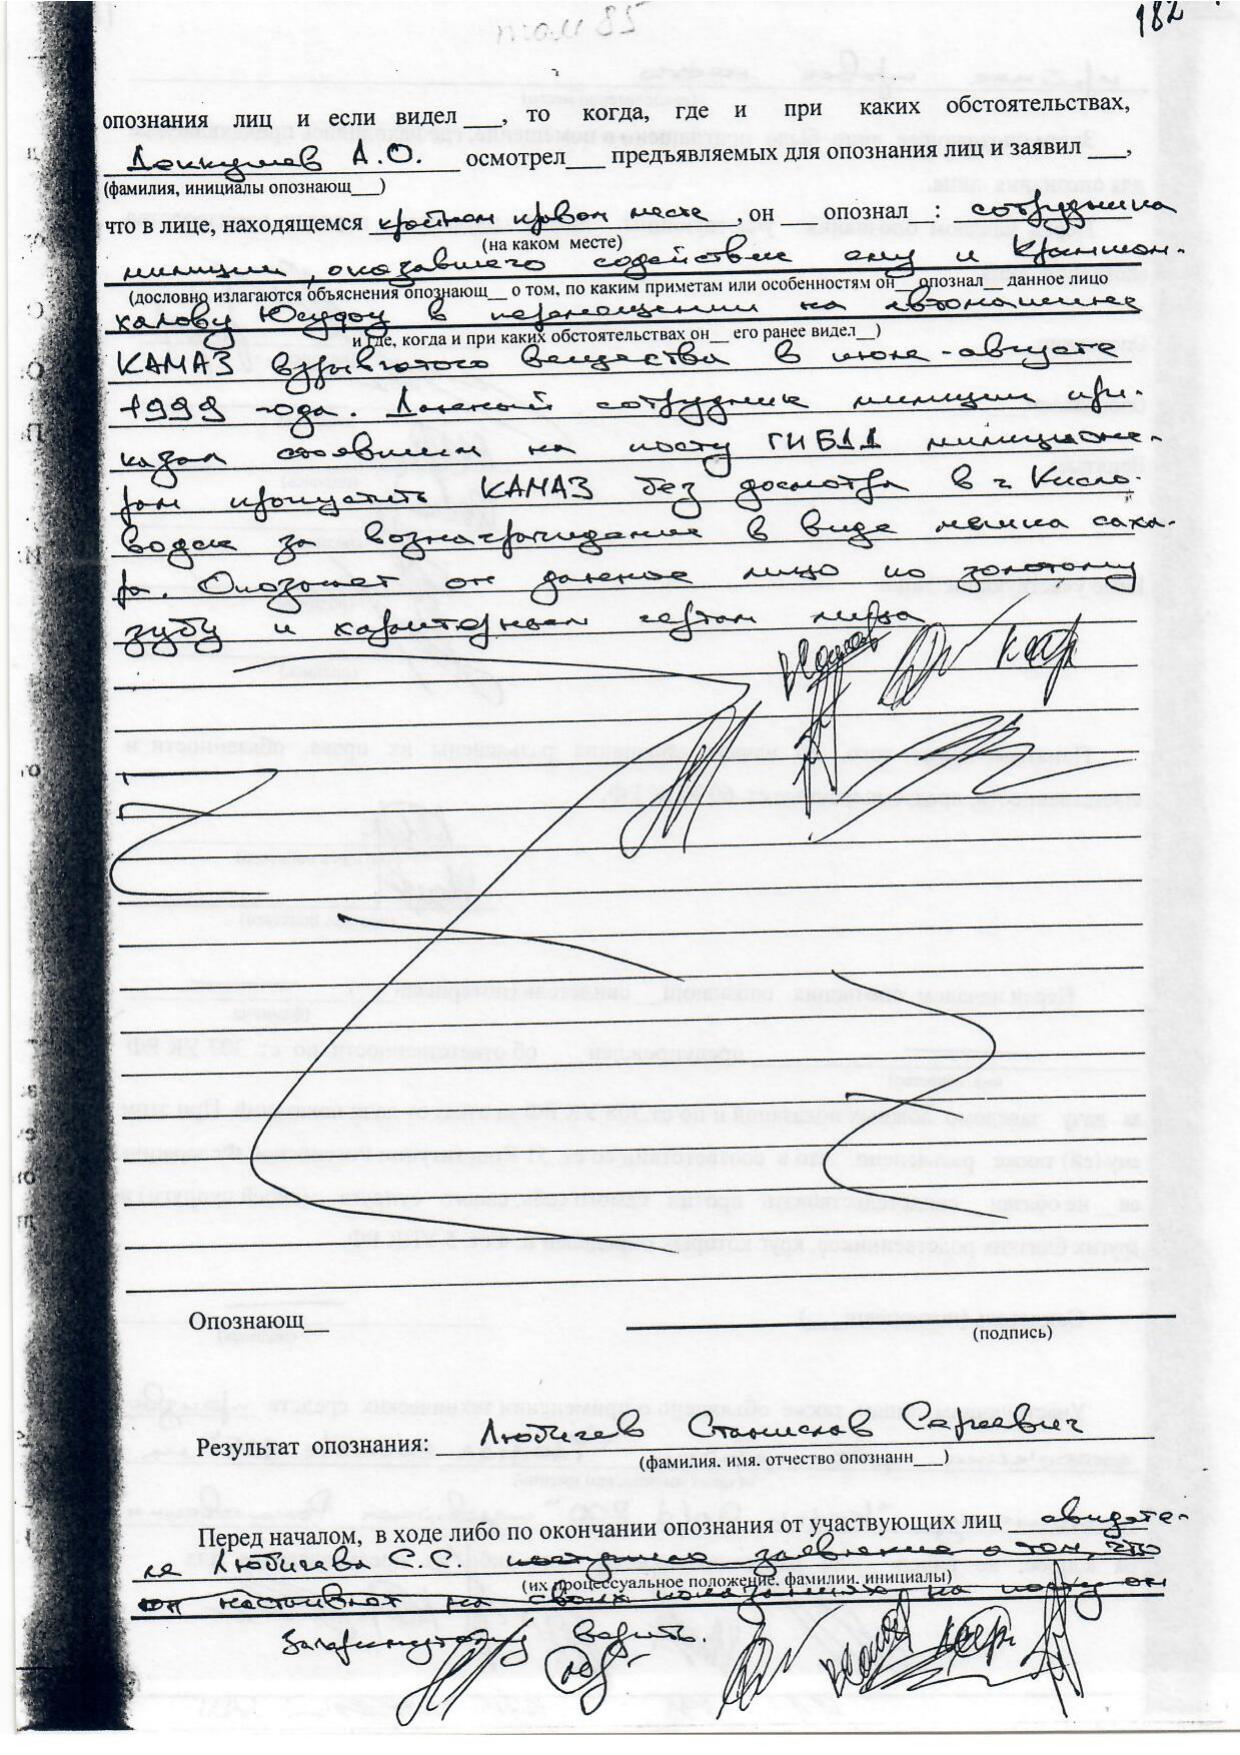 том 85
182
опознания лиц и если видел___, то когда, где и при каких обстоятельствах,
Деккушев А.О. осмотрел___ предъявляемых для опознания лиц и заявил ___,
(фамилия, инициалы опознающ___)
что в лице, находящемся крайнем правом месте, он опознал__: сотрудника
(на каком месте)
милиции, оказавшего содействие ему и Крымшам-
(дословно излагаются объяснения опознающ__ о том, по каким приметам или особенностям он__ опознал__ данное лицо
халову Юсуфу в перемещении на автомашине
и где, когда и при каких обстоятельствах он__ его ранее видел__)
КАМАЗ взрывчатого вещества в июле-августе
1999 года. Данный сотрудник милиции при-
казал стоявшим на посту ГИБДД милиционе-
рам пропустить КАМАЗ без досмотра в г. Кисло-
водск за вознаграждение в виде мешка саха-
ра. Опознает он данное лицо по золотому
зубу и характерным чертам лица
Опознающ__
(подпись)
Результат опознания: Любичев Станислав Сергеевич
(фамилия, имя, отчество опознанн___)
Перед началом, в ходе либо по окончании опознания от участвующих лиц свидете-
ля Любичева С.С. поступило заявление о том, что
(их процессуальное положение, фамилии, инициалы)
он настаивает на своих показаниях на
верить.